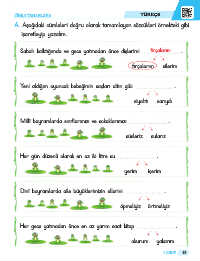 TÜRKÇE
A. Aşağıdaki cümleleri doğru olarak tamamlayan sözcükleri örnekteki gibi
işaretleyip yazalım.
Sabah kalktığımda ve gece yatmadan önce dişlerimi fırçalarım.
fırçalarım alarım
Yeni aldığım oyuncak bebeğimin saçları altın gibi
siyahtı sarıydı
Millî bayramlarda sınıflarımızı ve sokaklarımızı
süsleriz
Her gün düzenli olarak en az iki litre su
yerim içerim
Dinî bayramlarda aile büyüklerimizin ellerini
öpmeliyiz
Her gece yatmadan önce en az yarım saat kitap
okurum